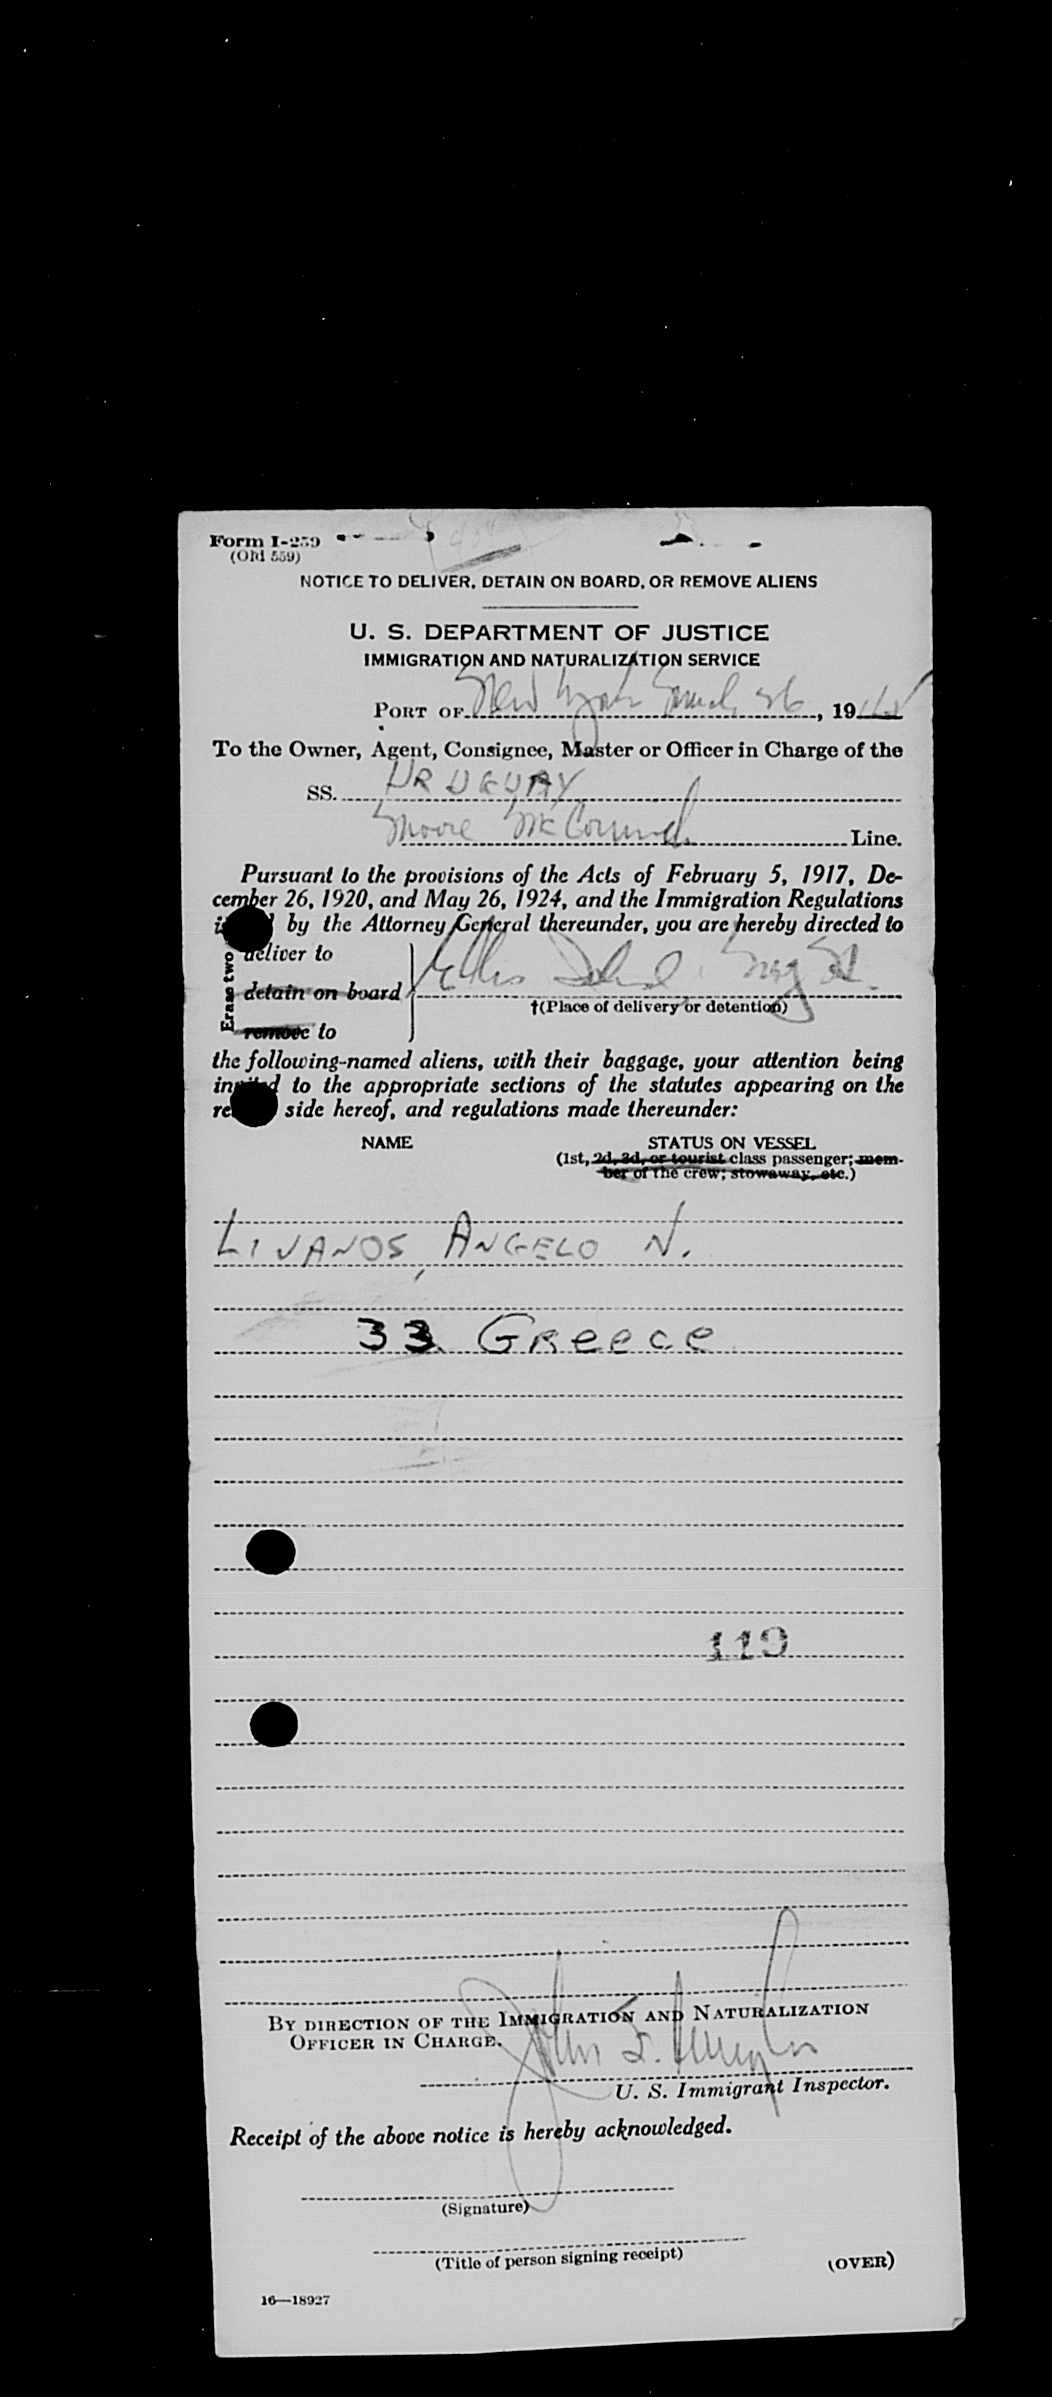 Form I-259
(Old 559)
NOTICE TO DELIVER, DETAIN ON BOARD, OR REMOVE ALIENS
U. S. DEPARTMENT OF JUSTICE
IMMIGRATION AND NATURALIZATION SERVICE
PORT OF New York March 26, 19
To the Owner, Agent, Consignee, Master or Officer in Charge of the
SS. URUGUAY
Moore McCormick Line.
Pursuant to the provisions of the Acts of February 5, 1917, De-
cember 26, 1920, and May 26, 1924, and the Immigration Regulations
by the Attorney General thereunder, you are hereby directed to
Erase two
deliver to
detain on board Ellis Island,
†(Place of delivery or detention)
remove to
the following-named aliens, with their baggage, your attention being
invited to the appropriate sections of the statutes appearing on the
side hereof, and regulations made thereunder:
NAME STATUS ON VESSEL
(1st, 2d, 3d, or tourist class passenger; mem-
ber of the crew; stowaway, etc.)
LIVANOS, ANGELO N.
33 GReece
119
BY DIRECTION OF THE IMMIGRATION AND NATURALIZATION
OFFICER IN CHARGE.
John
U. S. Immigrant Inspector.
Receipt of the above notice is hereby acknowledged.
(Signature)
(Title of person signing receipt)
(OVER)
16—18927